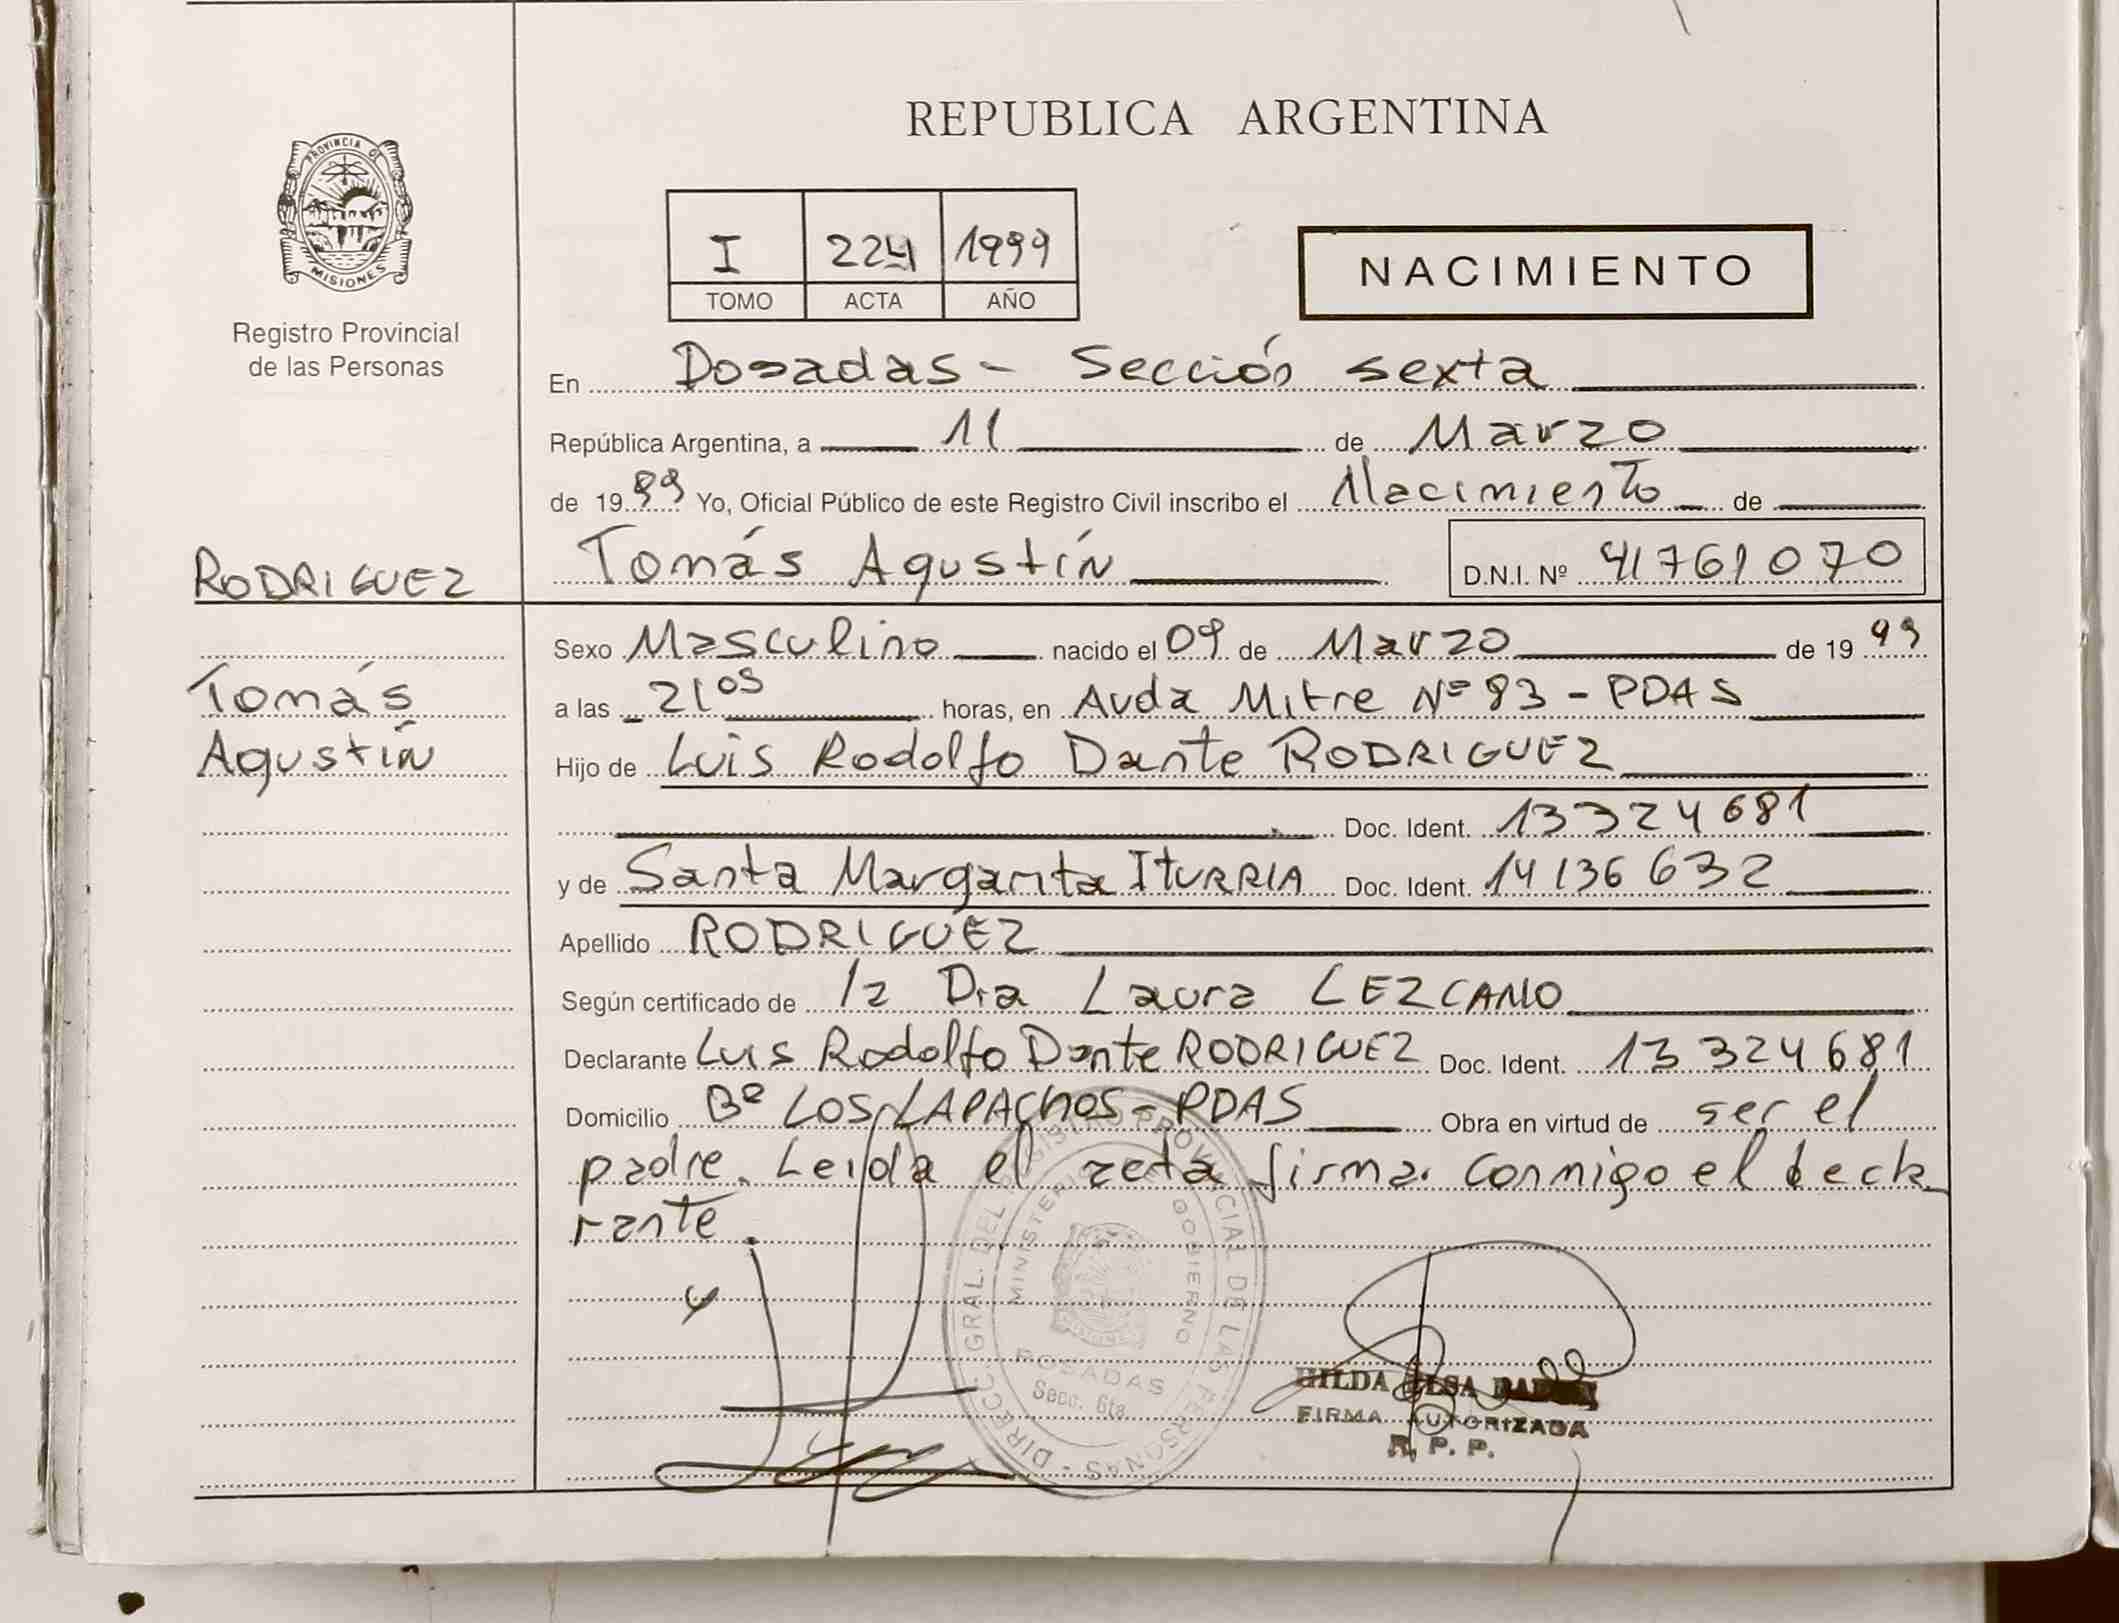 REPUBLICA ARGENTINA
PROVINCIA DE
MISIONES
Registro Provincial
de las Personas
I 224 1999
TOMO ACTA AÑO
NACIMIENTO
En Posadas - Sección sexta
República Argentina, a 11 de Marzo
de 1999 Yo, Oficial Público de este Registro Civil inscribo el Nacimiento de
Tomás Agustín D.N.I. Nº 41761070
RODRIGUEZ
Tomás
Agustín
Sexo Masculino nacido el 09 de Marzo de 1999
a las 21 05 horas, en Avda Mitre Nº 93 - PDAS
Hijo de Luis Rodolfo Dante RODRIGUEZ
Doc. Ident. 13324681
y de Santa Margarita ITURRIA Doc. Ident. 14136632
Apellido RODRIGUEZ
Según certificado de la Dra Laura LEZCANO
Declarante Luis Rodolfo Dante RODRIGUEZ Doc. Ident. 13324681
Domicilio Bº LOS LAPACHOS - PDAS Obra en virtud de ser el
padre. Leida el acta firma conmigo el decla
rante.
DIRECC. GRAL. DEL REGISTRO PROVINCIAL DE LAS PERSONAS
MINISTERIO DE GOBIERNO
POSADAS
Secc. 6ta
HILDA ELSA
FIRMA AUTORIZADA
R. P. P.